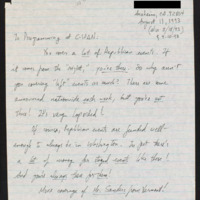 Anaheim, CA 92804
August 12, 1993
To Programming at C-SPAN:
You cover a lot of Republican events. If
it was from the "right," you're there. So why aren't
you covering "left" events as much? There are some
announced nationwide each week, but you're not
there! It's very lopsided!
Of course, Republican events are funded well-
enough to always be in Washington. In fact there's
a lot of money for staged events like these!
And you're always there for them!
More coverage of the
from Vermont!